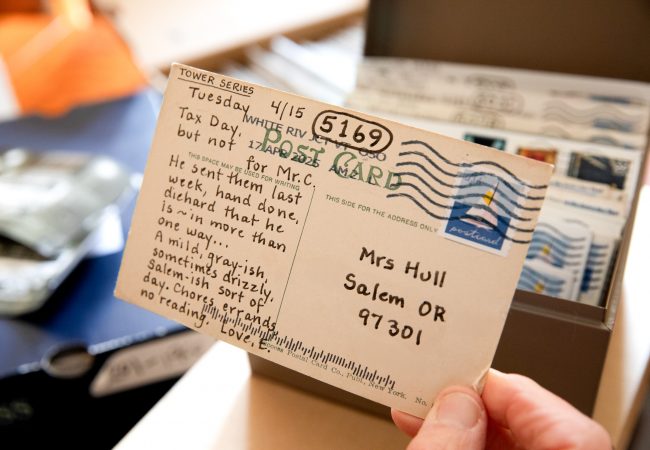 TOWER SERIES
Tuesday 4/15
Tax Day,
but not for Mr. C.
He sent them last
week, hand done,
diehard that he
is ~ in more than
one way...
A mild, gray-ish,
sometimes drizzly,
Salem-ish sort of
day. Chores errands,
no reading. Love, E.
5169
WHITE RIV JCT VT 050
17 APR 2025 AM
POST CARD
THIS SPACE MAY BE USED FOR WRITING
THIS SIDE FOR THE ADDRESS ONLY
postcard
Mrs Hull
Salem OR
97301
Postal Card Co., Pub., New York. No.